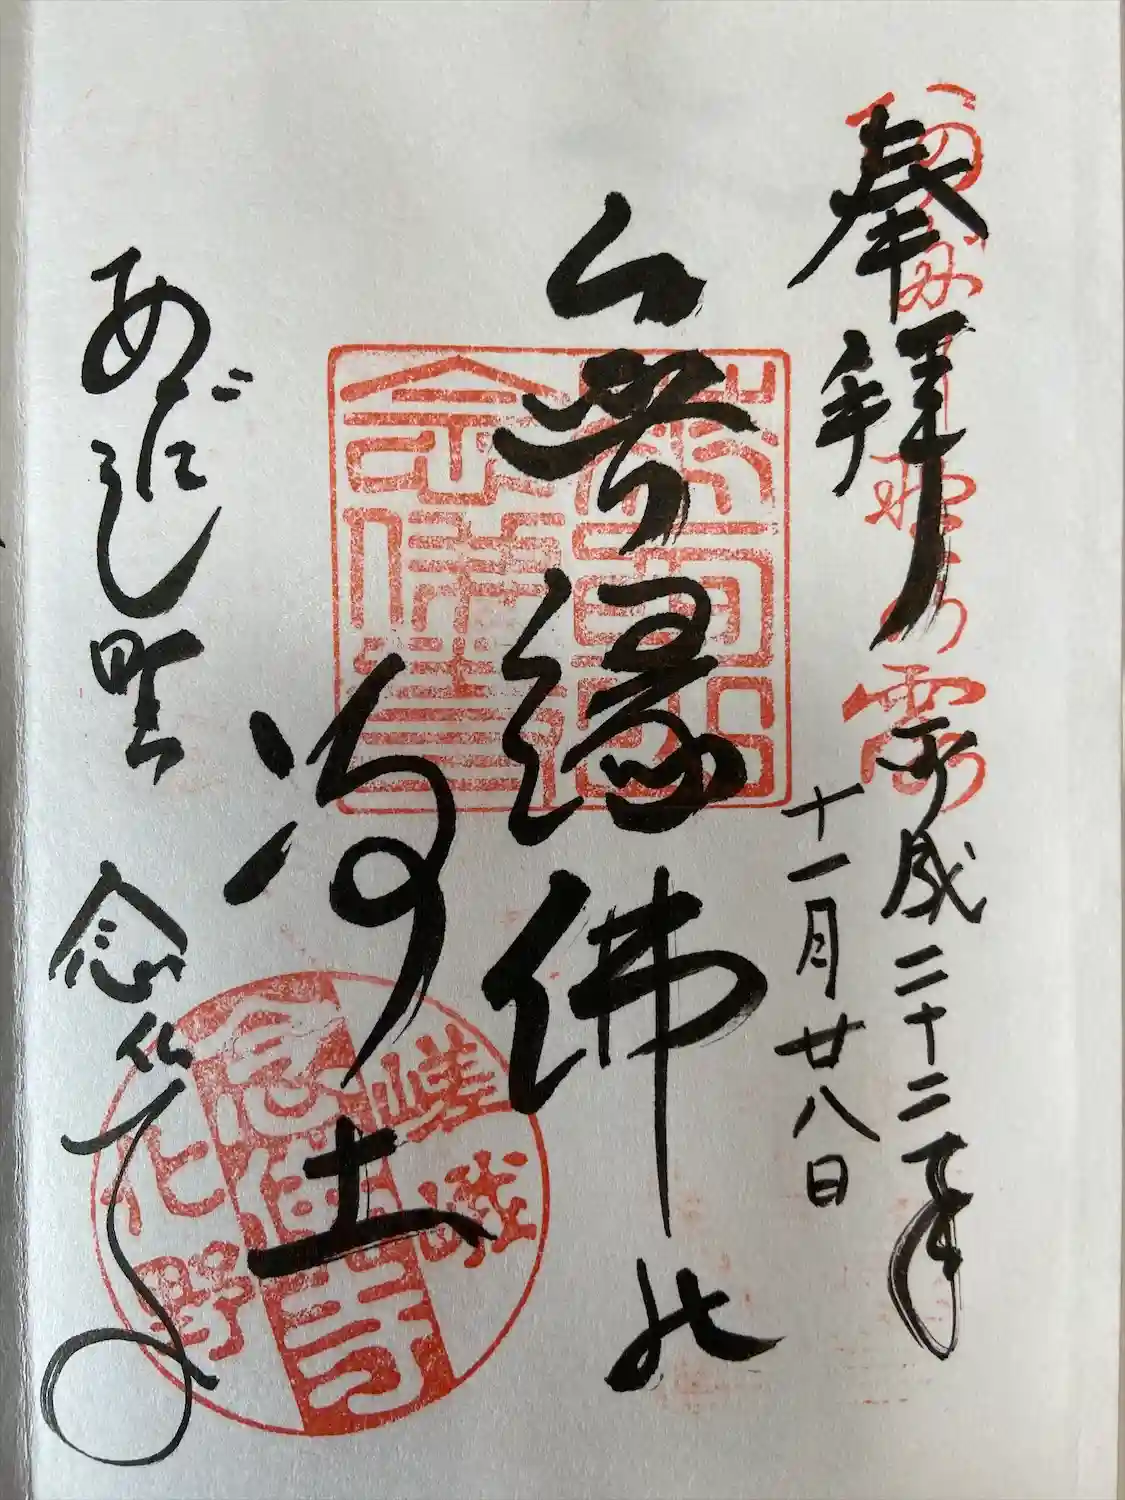 奉拝
平成二十二年
十一月廿八日
無縁佛
浄土
あだし野
念仏寺
華西山
嵯峨
念佛寺
化野